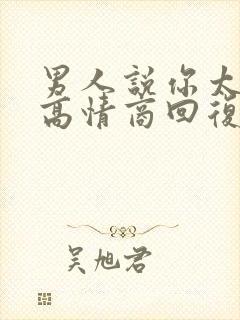 男人說你太
高情商回復
吳旭君